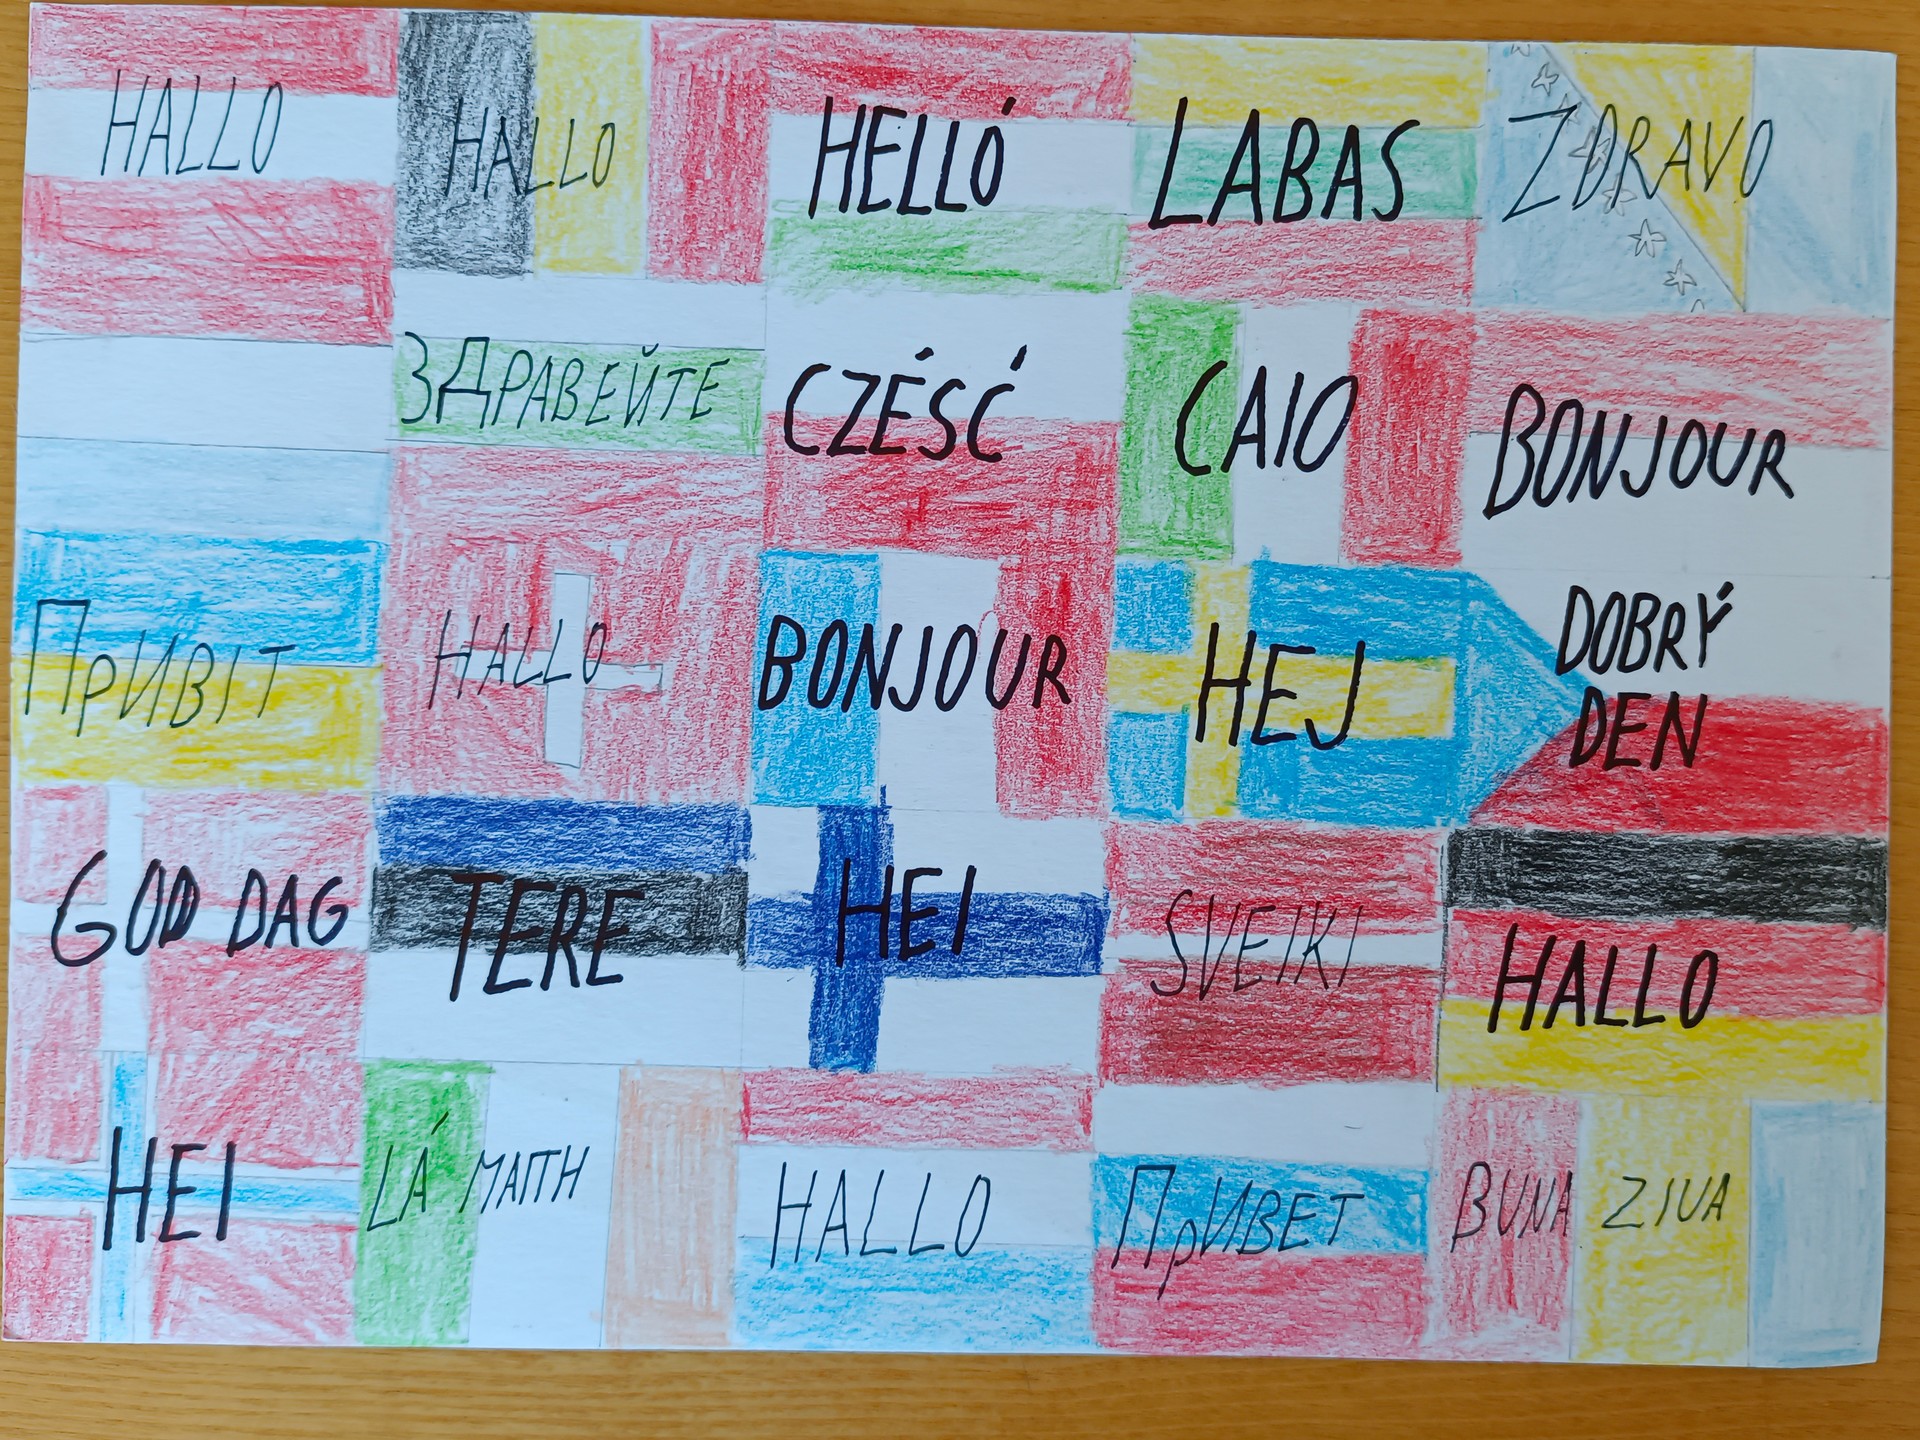 HALLO
HALLO
HELLÓ
LABAS
ZDRAVO
ЗДРАВЕЙТЕ
CZÉSĆ
CAIO
BONJOUR
ПРИВІТ
HALLO
BONJOUR
HEJ
DOBRÝ
DEN
GOD DAG
TERE
HEI
SVEIKI
HALLO
HEI
LÁ MAITH
HALLO
ПРИВЕТ
BUNA ZIUA